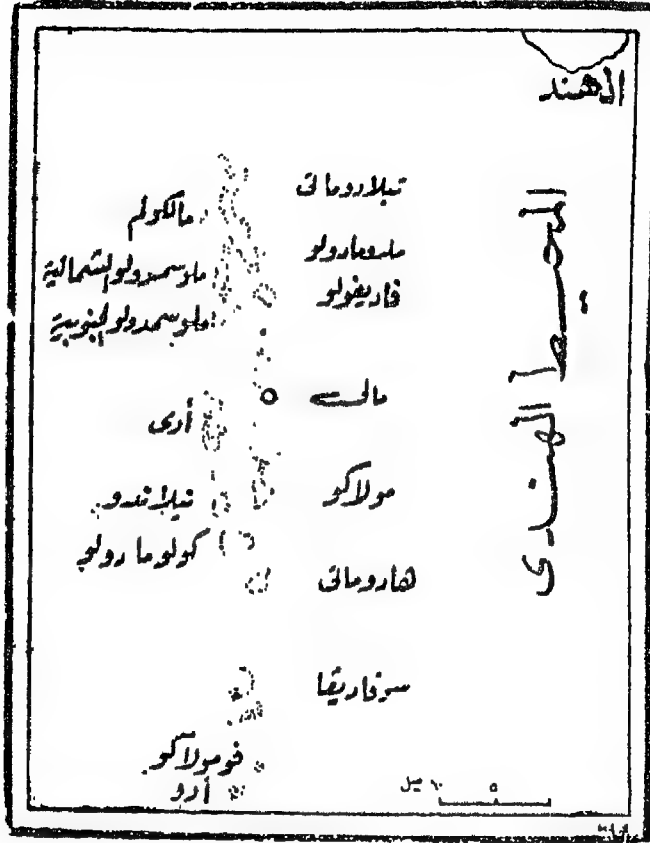 الهند
المحيط الهندى
تيلادوماتى
مالكولم
ملدومادولو
ملوسمدولو الشمالية
فاديفولو
ملوسمدولو الجنوبية
مالى
أرى
مولاكو
نيلاندو
كولوما دولو
هادوماتى
سوفاديفا
فومولاكو
أدو
ميل